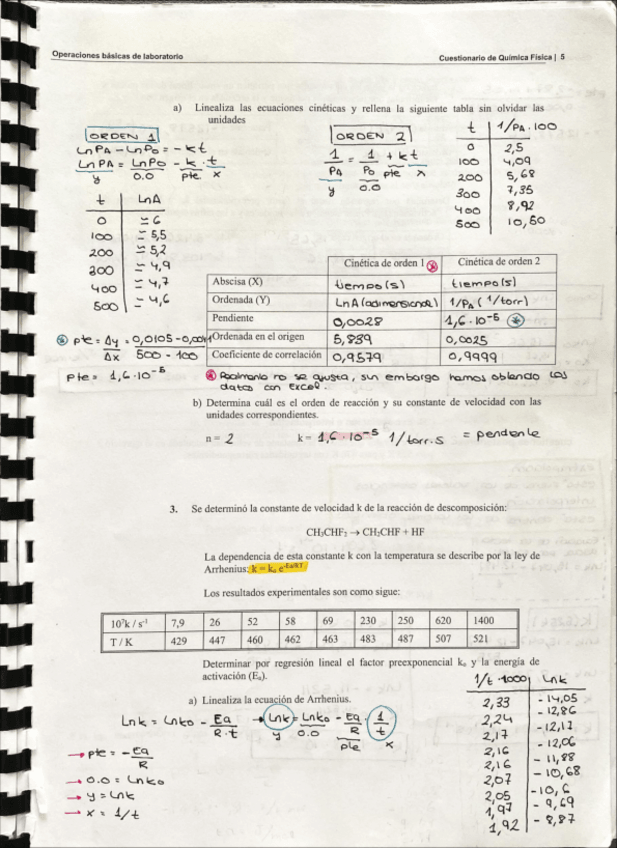 Operaciones básicas de laboratorio Cuestionario de Química Física | 5
a) Linealiza las ecuaciones cinéticas y rellena la siguiente tabla sin olvidar las
unidades
ORDEN 1
LnPA - LnPo = - kt
LnPA = LnPo - k · t
y o.o pte. x
t LnA
0 ≃ 6
100 ≃ 5,5
200 ≃ 5,2
300 ≃ 4,9
400 ≃ 4,7
500 ≃ 4,6
ORDEN 2
1/PA = 1/Po + kt
y o.o pte x
t 1/PA · 100
0 2,5
100 4,09
200 5,68
300 7,35
400 8,92
500 10,50
Cinética de orden 1 Cinética de orden 2
Abscisa (X) tiempo (s) tiempo (s)
Ordenada (Y) LnA (adimensional) 1/PA (1/torr)
Pendiente 0,0028 1,6·10⁻⁵
Ordenada en el origen 5,839 0,0025
Coeficiente de correlación 0,9579 0,9999
pte = Δy/Δx = 0,0105 - / 500 - 100
pte = 1,6·10⁻⁵
Realmente no se ajusta, sin embargo hemos obtenido los
datos con excel.
b) Determina cuál es el orden de reacción y su constante de velocidad con las
unidades correspondientes.
n = 2 k = 1,6·10⁻⁵ 1/torr·s = pendiente
3. Se determinó la constante de velocidad k de la reacción de descomposición:
CH₃CHF₂ → CH₂CHF + HF
La dependencia de esta constante k con la temperatura se describe por la ley de
Arrhenius: k = k₀ e^-Ea/RT
Los resultados experimentales son como sigue:
10⁷k / s⁻¹ 7,9 26 52 58 69 230 250 620 1400
T / K 429 447 460 462 463 483 487 507 521
Determinar por regresión lineal el factor preexponencial k₀ y la energía de
activación (Eₐ).
a) Linealiza la ecuación de Arrhenius.
Lnk = Lnko - Ea/R·t → Lnk = Lnko - Ea/R · 1/t
y o.o pte x
→ pte = - Ea/R
→ o.o = Lnko
→ y = Lnk
→ x = 1/t
1/t ·1000 Lnk
2,33 - 14,05
2,24 - 12,86
2,17 - 12,17
2,16 - 12,06
2,16 - 11,88
2,07 - 10,68
2,05 - 10,6
1,97 - 9,69
1,92 - 8,87